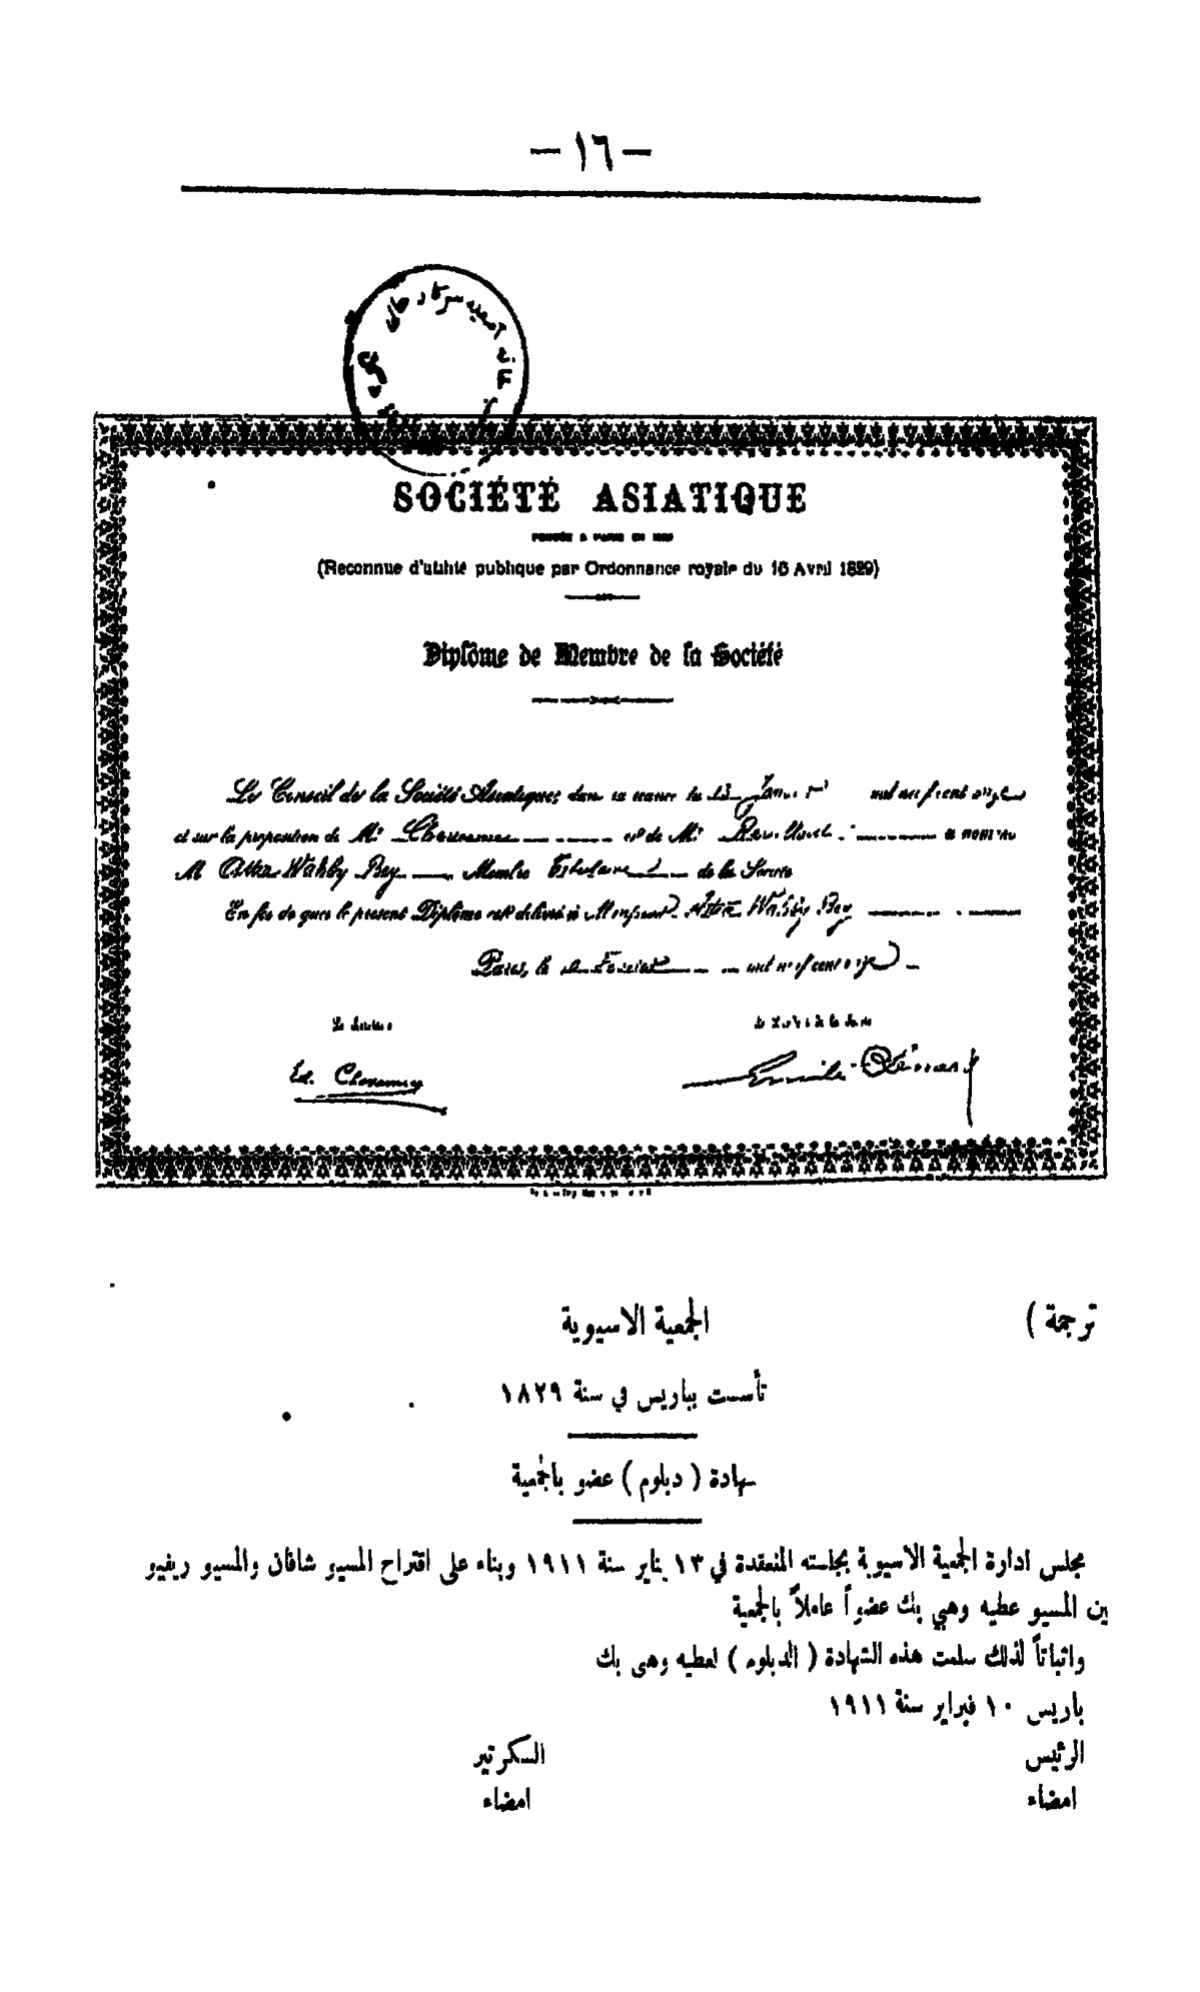 — ١٦ —
SOCIÉTÉ ASIATIQUE
FONDÉE A PARIS EN
(Reconnue d'utilité publique par Ordonnance royale du 16 Avril 1829)
Diplôme de Membre de la Société
Le Conseil de la Société Asiatique, dans sa séance du 13 Janvier mil neuf cent onze
et sur la proposition de Mr. et de Mr. a nommé
M Attia Wahby Bey Membre Titulaire de la Société
En foi de quoi le présent Diplôme est délivré à Monsieur Attia Wahby Bey
Paris, le mil neuf cent onze
Ed. Chavannes
Emile Sénart
ترجمة )
الجمعية الاسيوية
تأسست بباريس في سنة ١٨٢٩
شهادة ( دبلوم ) عضو بالجمعية
مجلس ادارة الجمعية الاسيوية بجلسته المنعقدة في ١٣ يناير سنة ١٩١١ وبناء على اقتراح المسيو شافان والمسيو ريفيو
ين المسيو عطيه وهبي بك عضواً عاملاً بالجمعية
واثباتاً لذلك سلمت هذه الشهادة ( الدبلوم ) لعطيه وهبى بك
باريس ١٠ فبراير سنة ١٩١١
الرئيس السكرتير
امضاء امضاء